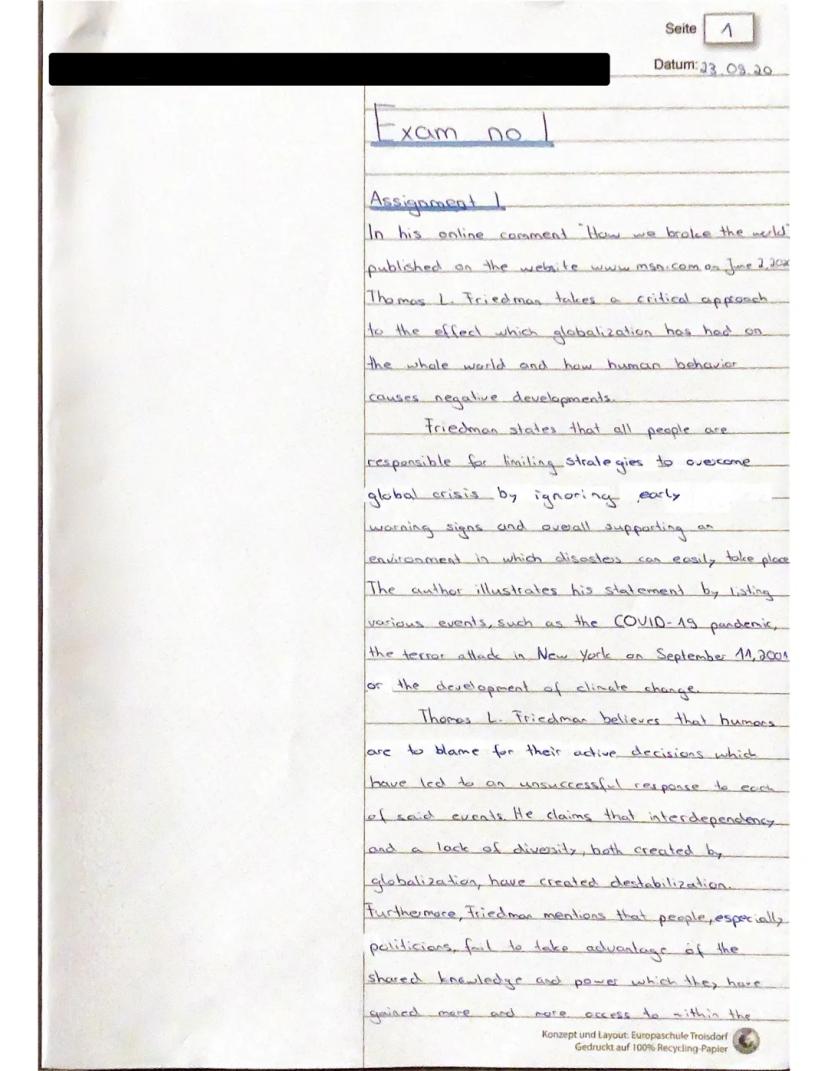 Seite 1
Datum: 23.09.20
Exam no 1
Assignment 1
In his online comment "How we broke the world"
published on the website www.msn.com on June 2, 2020
Thomas L. Friedman takes a critical approach
to the effect which globalization has had on
the whole world and how human behavior
causes negative developments.
Friedman states that all people are
responsible for limiting strategies to overcome
global crisis by ignoring early
warning signs and overall supporting an
environment in which disasters can easily take place
The author illustrates his statement by listing
various events, such as the COVID-19 pandemic,
the terror attack in New York on September 11, 2001
or the development of climate change.
Thomas L. Friedman believes that humans
are to blame for their active decisions which
have led to an unsuccessful response to each
of said events. He claims that interdependency
and a lack of diversity, both created by
globalization, have created destabilization.
Furthermore, Friedman mentions that people, especially
politicians, fail to take advantage of the
shared knowledge and power which they have
gained more and more access to within the
Konzept und Layout: Europaschule Troisdorf
Gedruckt auf 100% Recycling-Papier